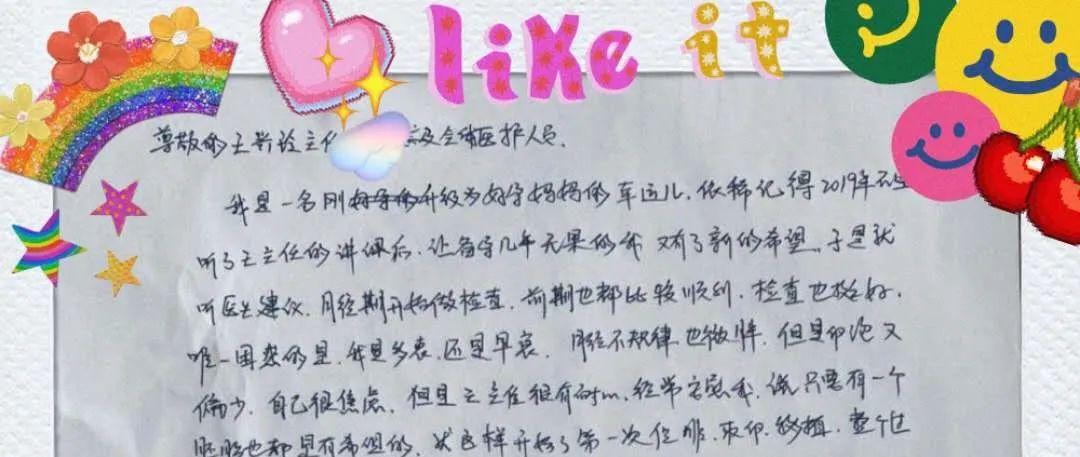 like it
尊敬的王兴玲主任 及全体医护人员,
我是一名刚升级为好孕妈妈的车迈儿,依稀记得2019年
听了王主任的讲课后,让备孕几年无果的我又有了新的希望,于是就
听医生建议,月经期开始做检查,前期也都比较顺利,检查也挺好,
唯一困惑的是,我是多囊,还是早衰,月经不规律也微胖,但是卵泡又
偏少,自己很焦虑,但是王主任很有耐心,经常安慰我,说只要有一个
胚胎也都是有希望的,就这样开始了第一次促排,取卵,移植,整个过